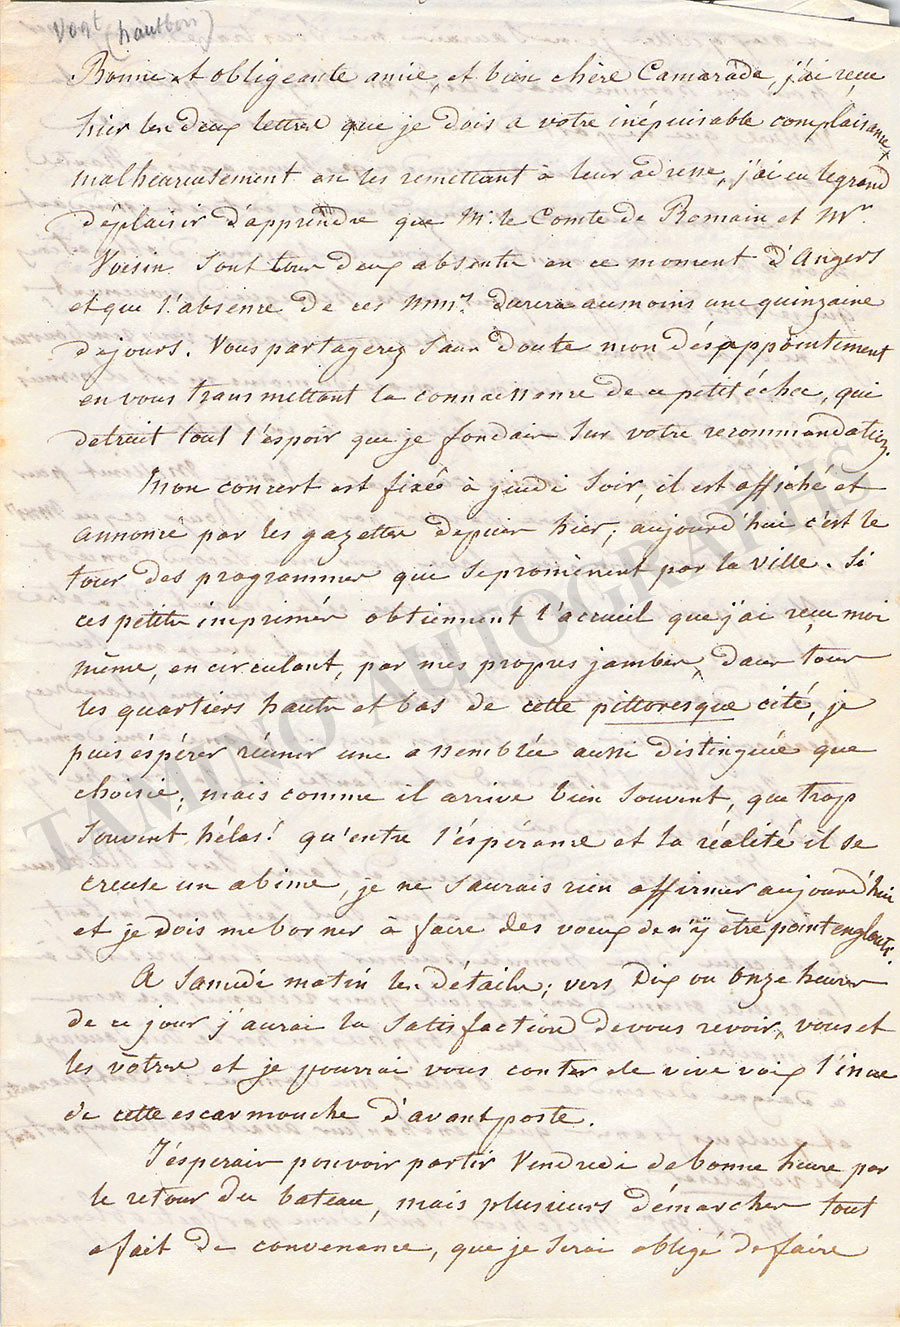 Vogt (hautbois)
Bonne et obligeante amie, et bien chère Camarade, j'ai reçu
hier les deux lettres que je dois a votre inépuisable complaisance,
malheureusement en les remettant à leur adresse, j'ai eu le grand
déplaisir d'apprendre que Mr. le Comte de Romain et Mr.
Voisin sont tous deux absents en ce moment d'Angers
et que l'absence de ces Mrs. durera aumoins une quinzaine
de jours. Vous partagerez sans doute mon désappointement
en vous transmettant la connaissance de ce petit échec, qui
detruit tout l'espoir que je fondais sur votre recommandation.
Mon concert est fixé à jeudi soir, il est affiché et
annoncé par les gazettes depuis hier; aujourd'hui c'est le
tour des programmes qui se promènent par la ville. Si
ces petits imprimés obtiennent l'accueil que j'ai reçu moi
même, en circulant, par mes propres jambes, dans tous
les quartiers hauts et bas de cette pittoresque cité, je
puis éspérer réunir une assemblée aussi distinguée que
choisie, mais comme il arrive bien souvent, que trop
souvent hélas! qu'entre l'éspérance et la réalité il se
creuse un abime, je ne saurais rien affirmer aujourd'hui
et je dois me borner à faire des voeux de n'y être point englouti.
A Samedi matin les détails; vers Dix ou Onze heures
de ce jour j'aurai la satisfaction de vous revoir, vous et
les vôtres et je pourrai vous conter de vive voix l'issue
de cette escarmouche d'avant poste.
J'esperais pouvoir partir Vendredi de bonne heure par
le retour du bateau, mais plusieurs démarches tout
a fait de convenance, que je serai obligé de faire
TAMINO AUTOGRAPHS